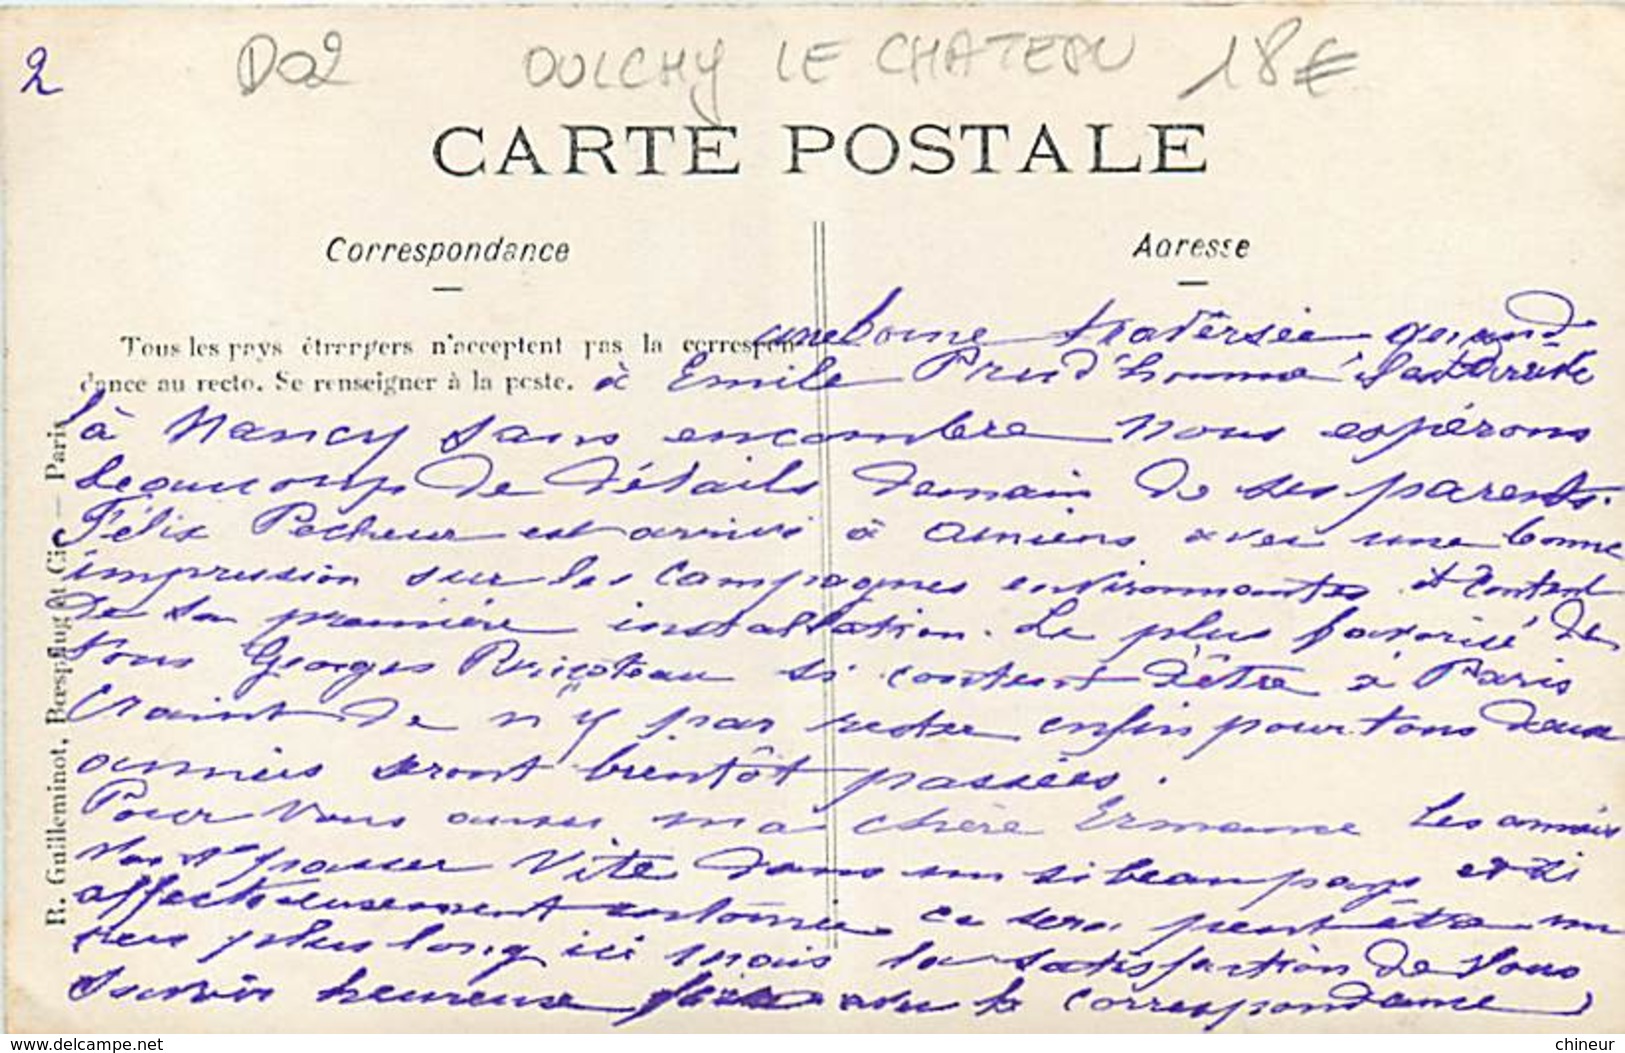 2
D02
OULCHY LE CHATEAU
18€
CARTE POSTALE
Correspondance
Adresse
Tous les pays étrangers n'acceptent pas la correspon-
dance au recto. Se renseigner à la poste.
R. Guilleminot, Bœspflug et Cie — Paris
une bonne traversée quand
à Emile Prud'homme il est arrivé
à Nancy sans encombre nous espérons
beaucoup de détails demain de ses parents.
Félix Pecheur est arrivé à Amiens avec une bonne
impression sur les campagnes environnantes et content
de sa première installation. Le plus favorisé de
tous Georges si content d'être à Paris
craint de n'y pas rester enfin pour tous deux
années seront bientôt passées.
Pour vous aussi ma chère Ermanne les années
vont passer vite dans un si beau pays et si
affectueusement entourée ce sera peut être un
peu plus long ici mais la satisfaction de vous
savoir heureuse avec la correspondance
delcampe.net
chineur